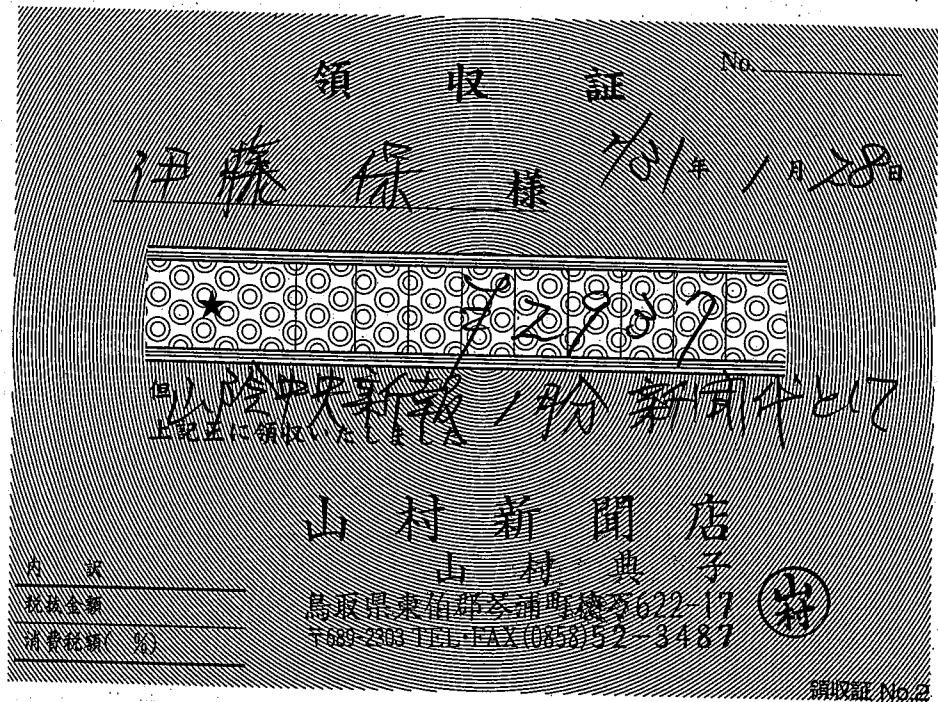 領収証 No.
伊藤 保 様 H31年1月28日
★ ¥2937
但 山陰中央新報 1月分 新聞代として
上記正に領収いたしました
山村新聞店
山村典子
鳥取県東伯郡琴浦町徳万622-17
〒689-2303 TEL・FAX(0858)52-3487
山村
内訳
税抜金額
消費税額( %)
領収証 No.2